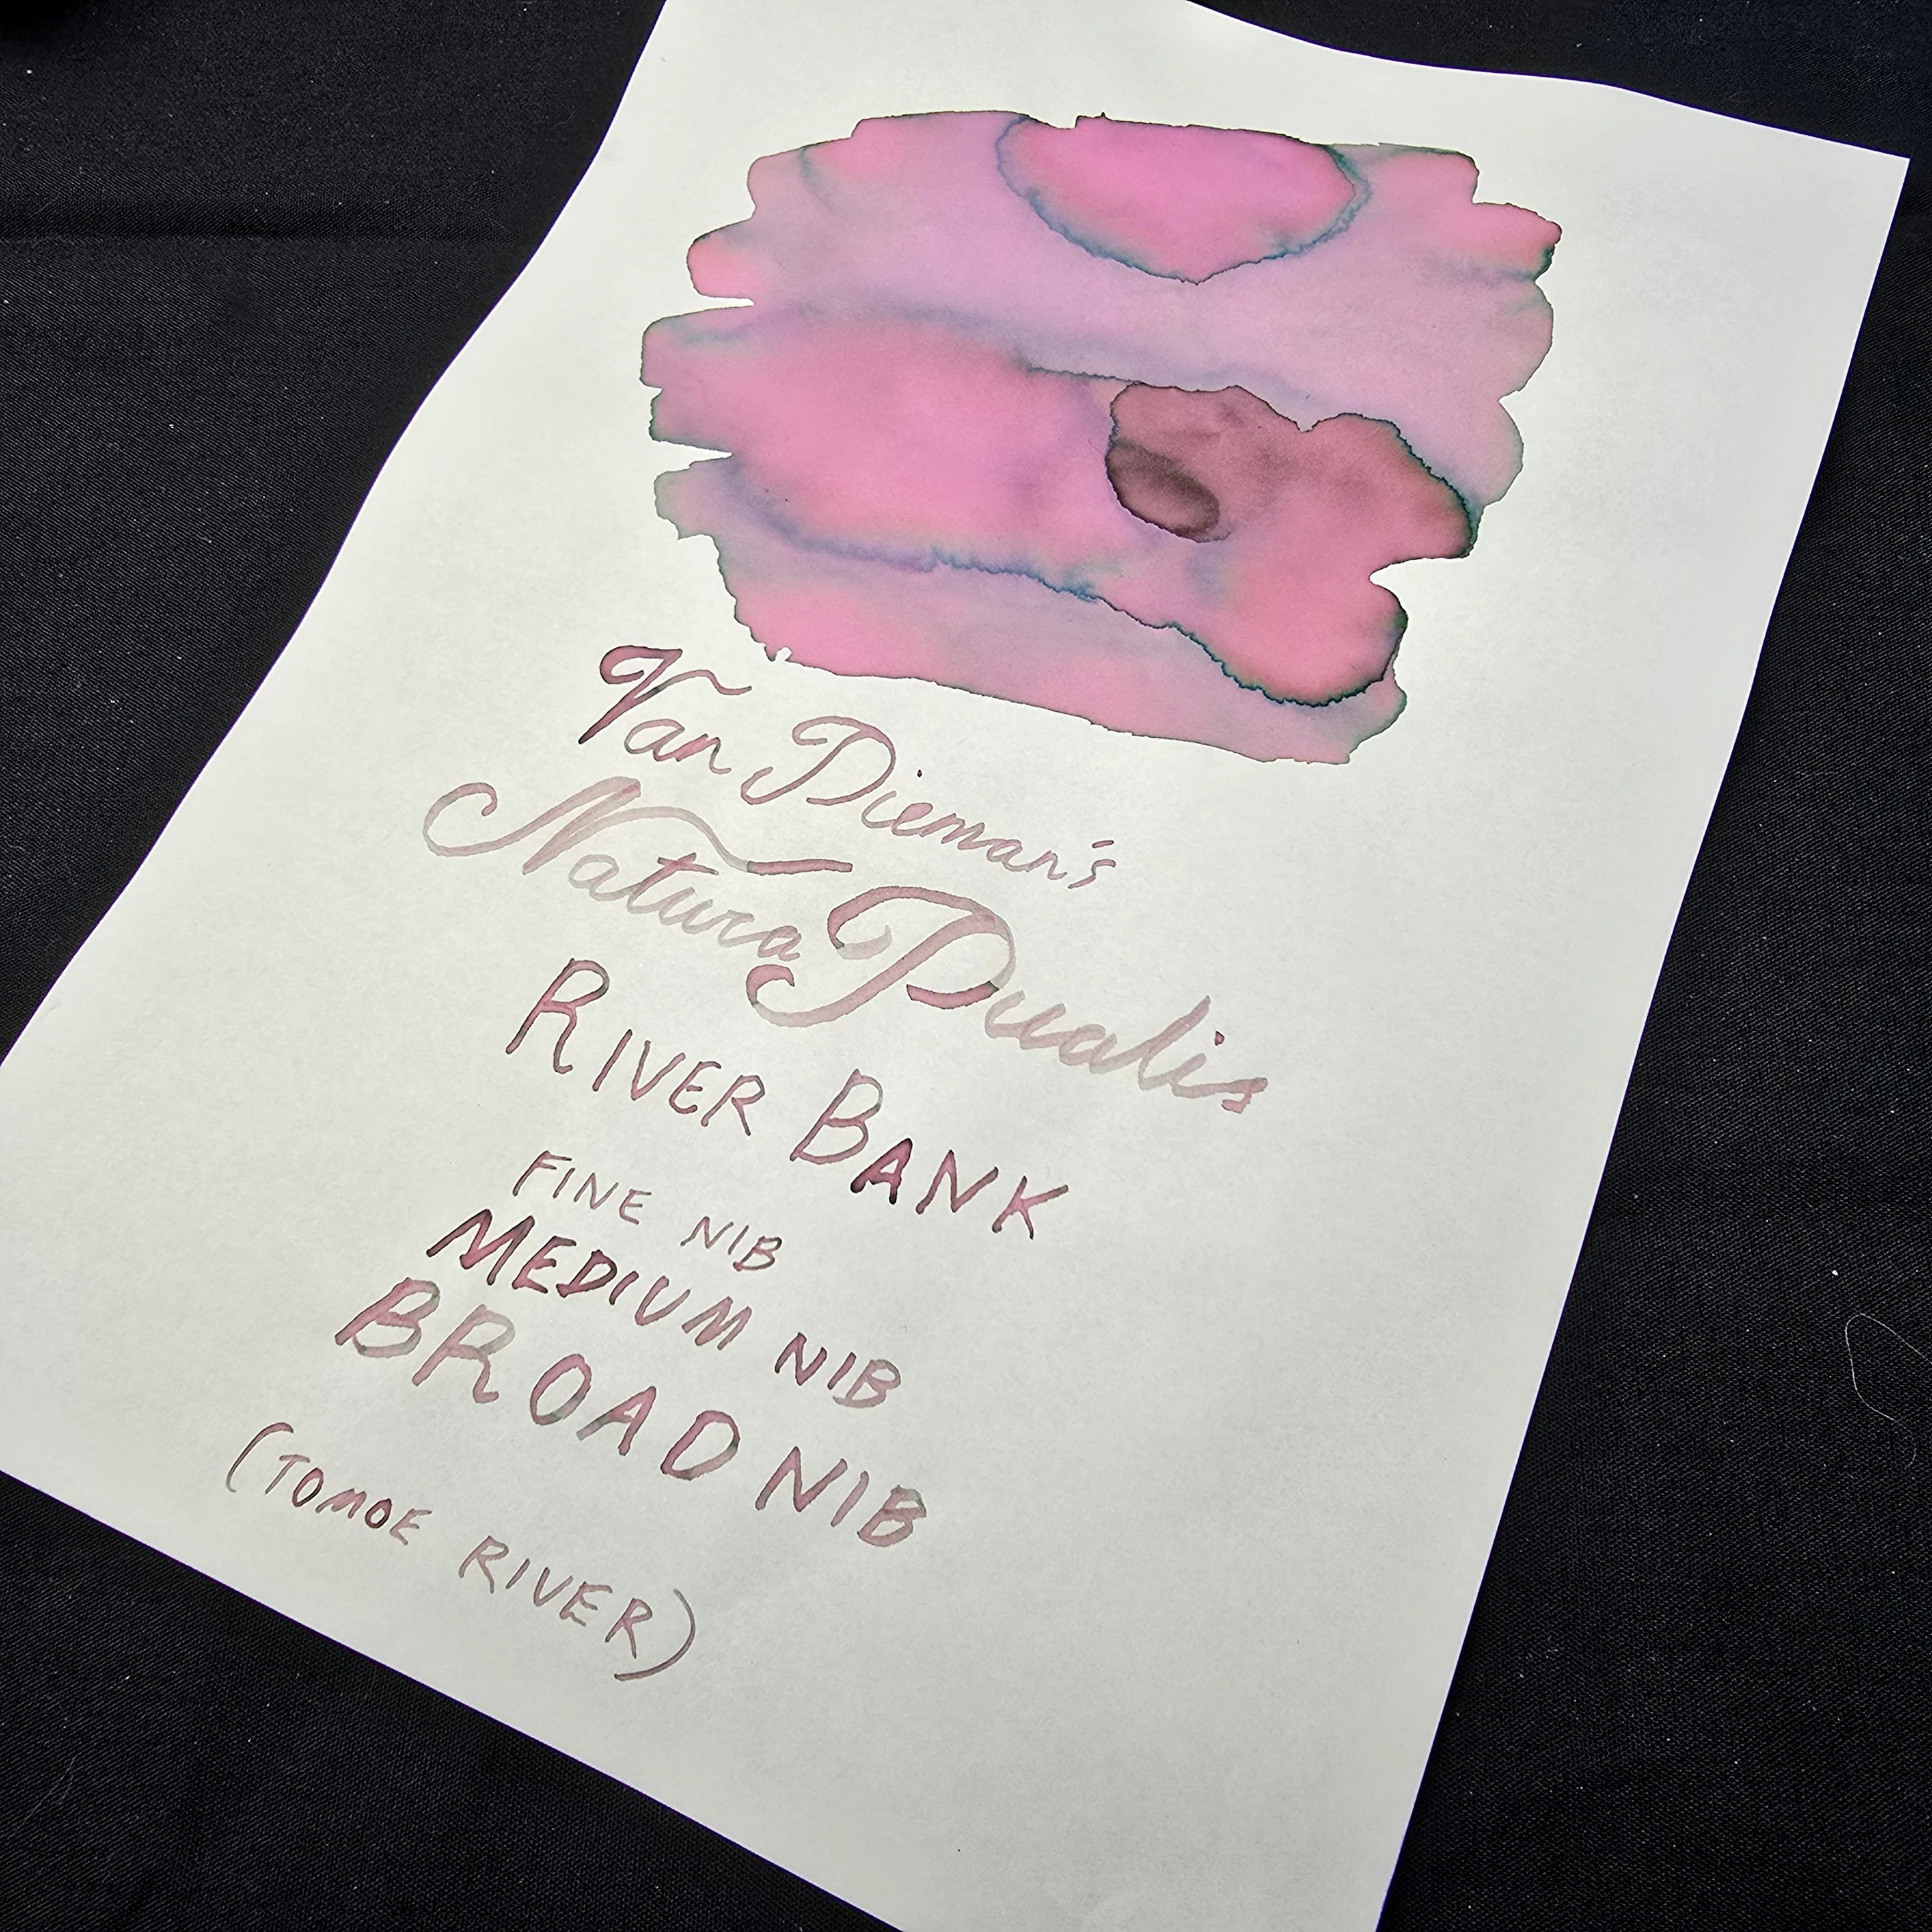 Van Dieman's
Natura Dualis
RIVER BANK
FINE NIB
MEDIUM NIB
BROAD NIB
(TOMOE RIVER)